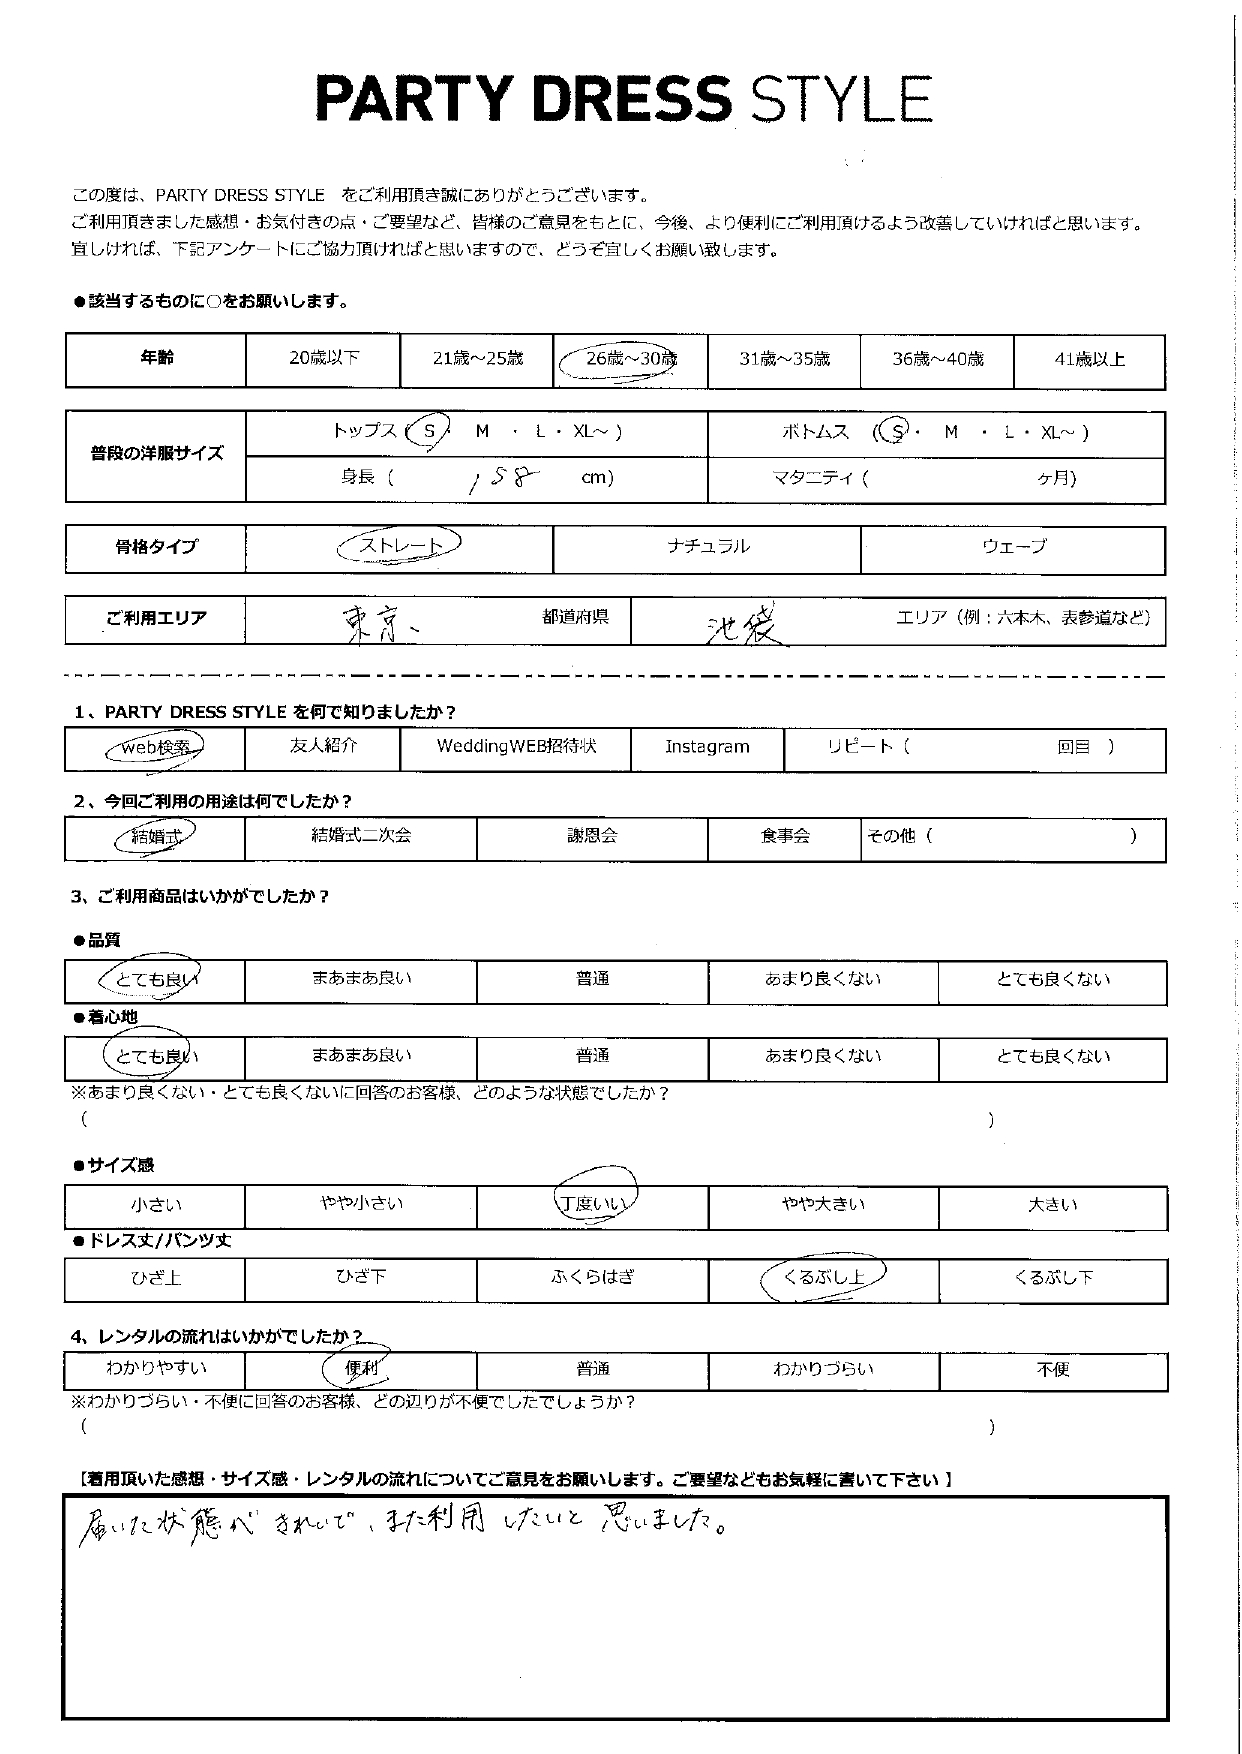 PARTY DRESS STYLE
この度は、PARTY DRESS STYLE をご利用頂き誠にありがとうございます。
ご利用頂きました感想・お気付きの点・ご要望など、皆様のご意見をもとに、今後、より便利にご利用頂けるよう改善していければと思います。
宜しければ、下記アンケートにご協力頂ければと思いますので、どうぞ宜しくお願い致します。
●該当するものに○をお願いします。
年齢 20歳以下 21歳～25歳 26歳～30歳 31歳～35歳 36歳～40歳 41歳以上
普段の洋服サイズ トップス ( S ・ M ・ L ・ XL～ ) ボトムス ( S ・ M ・ L ・ XL～ )
身長 ( 158 cm) マタニティ ( ヶ月)
骨格タイプ ストレート ナチュラル ウェーブ
ご利用エリア 東京、 都道府県 池袋 エリア（例：六本木、表参道など）
1、PARTY DRESS STYLE を何で知りましたか？
web検索 友人紹介 WeddingWEB招待状 Instagram リピート ( 回目 )
2、今回ご利用の用途は何でしたか？
結婚式 結婚式二次会 謝恩会 食事会 その他 ( )
3、ご利用商品はいかがでしたか？
●品質
とても良い まあまあ良い 普通 あまり良くない とても良くない
●着心地
とても良い まあまあ良い 普通 あまり良くない とても良くない
※あまり良くない・とても良くないに回答のお客様、どのような状態でしたか？
( )
●サイズ感
小さい やや小さい 丁度いい やや大きい 大きい
●ドレス丈/パンツ丈
ひざ上 ひざ下 ふくらはぎ くるぶし上 くるぶし下
4、レンタルの流れはいかがでしたか？
わかりやすい 便利 普通 わかりづらい 不便
※わかりづらい・不便に回答のお客様、どの辺りが不便でしたでしょうか？
( )
【着用頂いた感想・サイズ感・レンタルの流れについてご意見をお願いします。ご要望などもお気軽に書いて下さい】
届いた状態がきれいで、また利用したいと思いました。